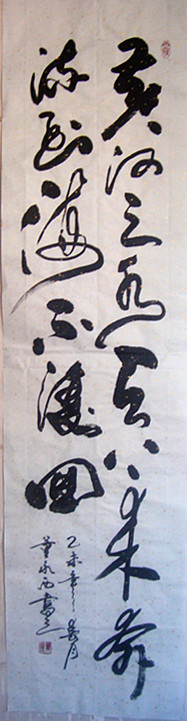 黄河之水天上来奔
流到海不復回
乙未年春月